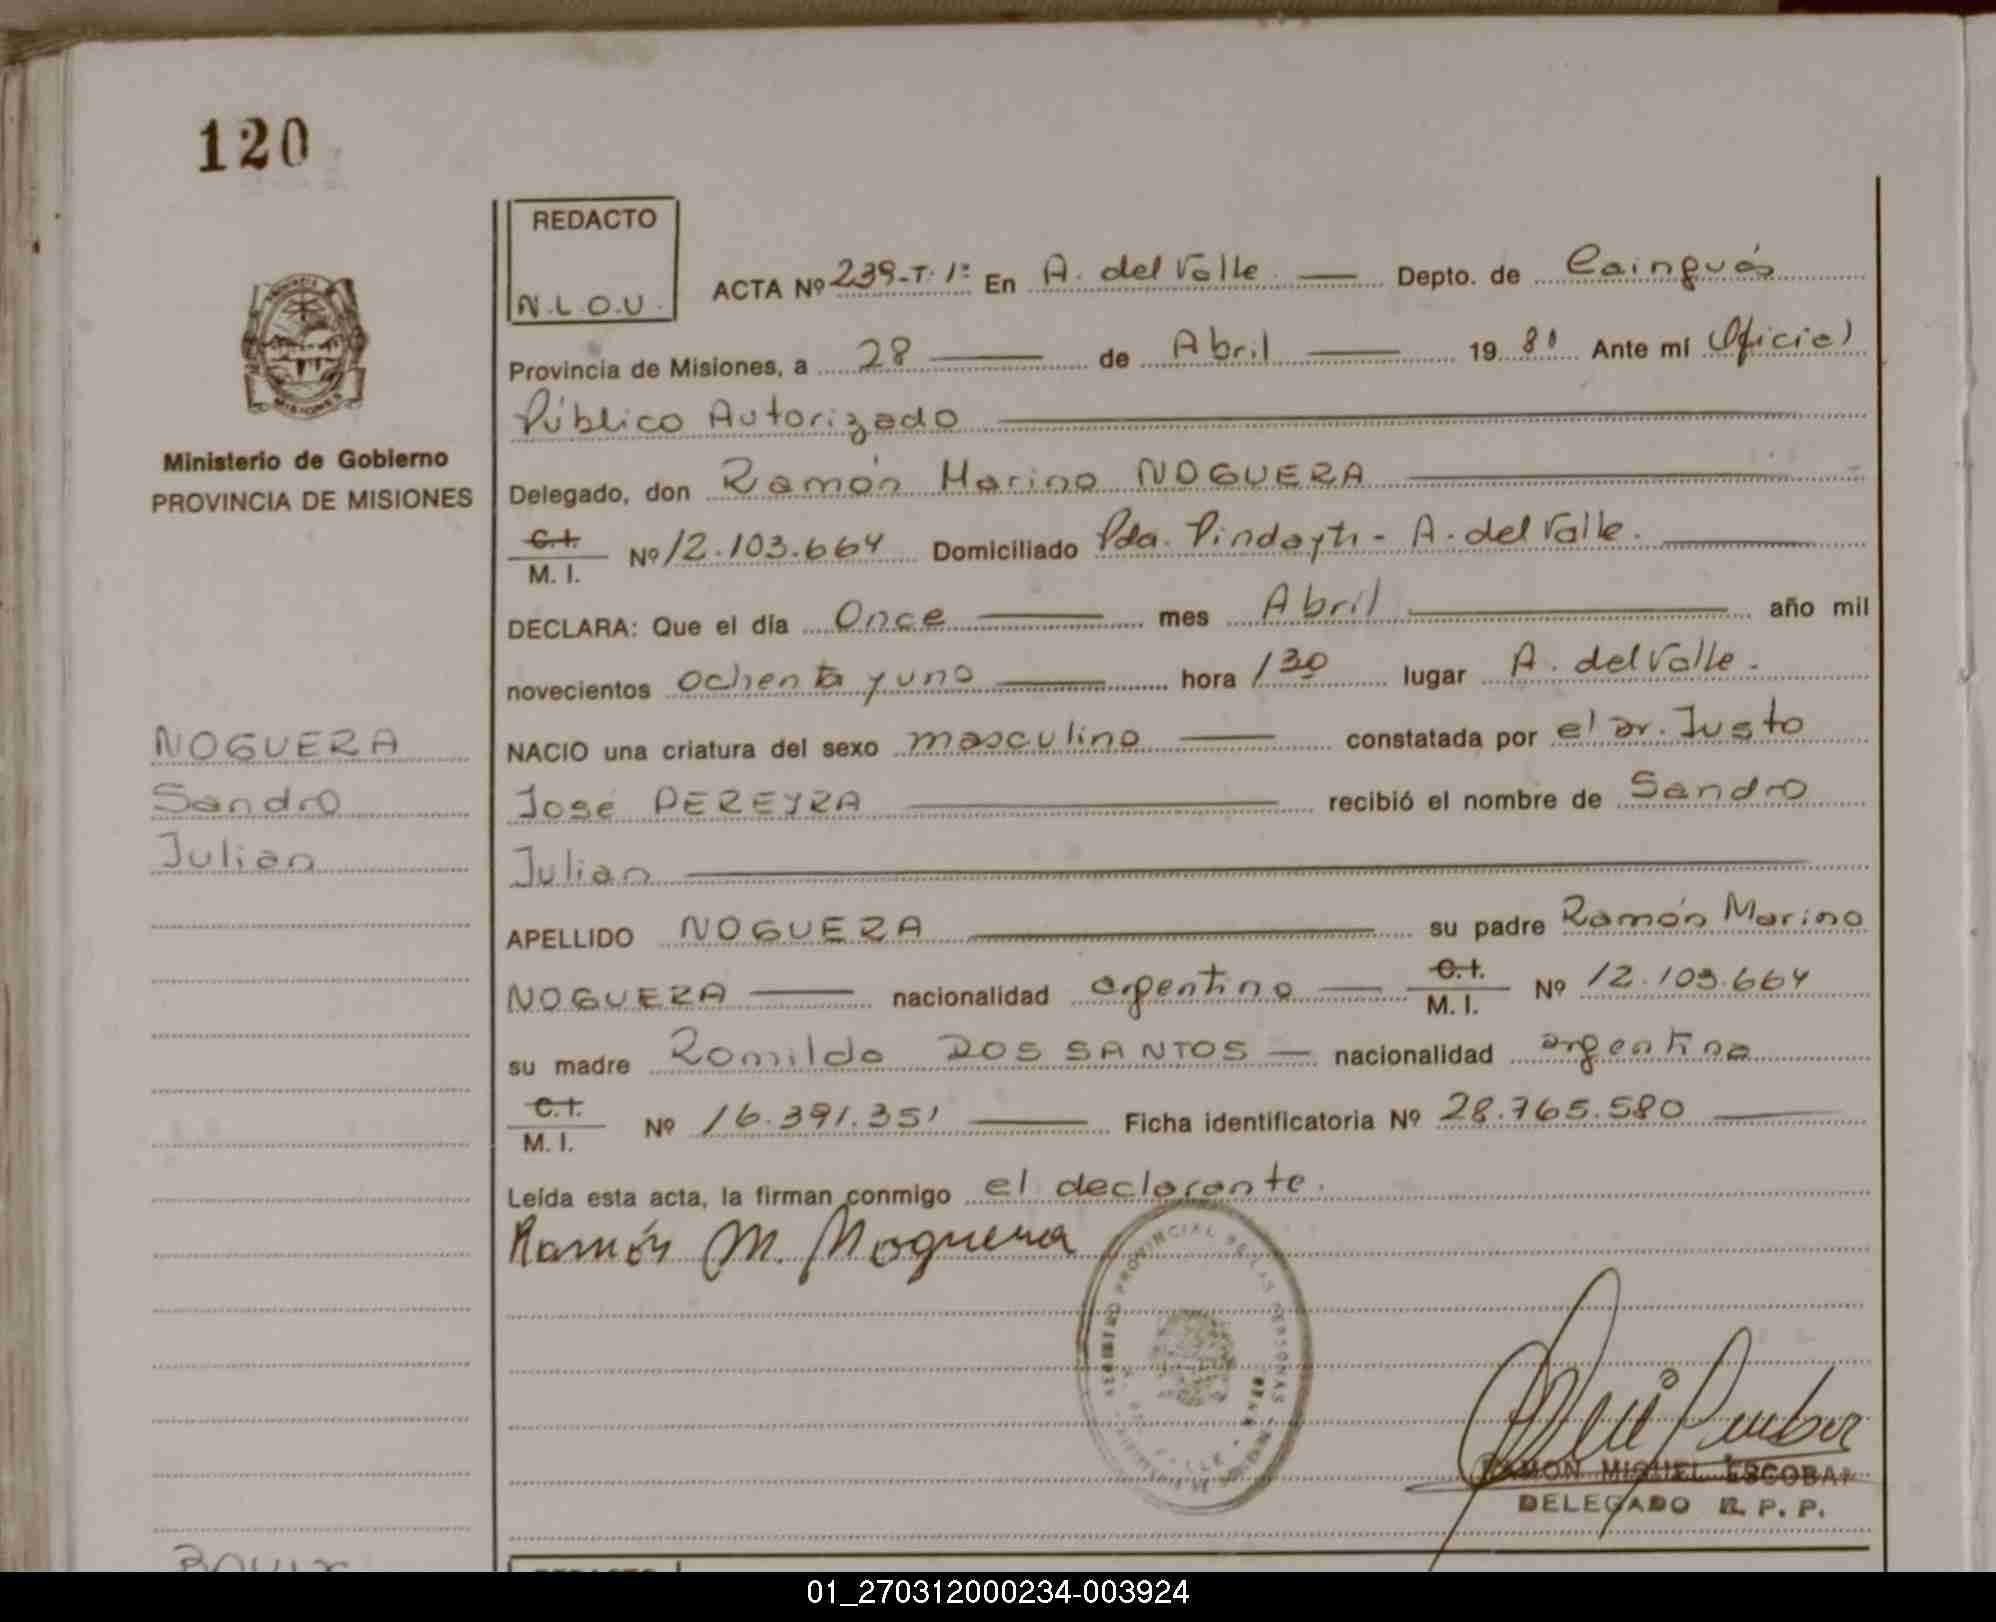 120
REDACTO
N.L.O.U.
ACTA Nº 239-T. 1º En A. del Valle Depto. de Cainguás
Provincia de Misiones, a 28 de Abril 1981 Ante mí Oficial
Público Autorizado
Delegado, don Ramón Marino NOGUERA
C.I. M.I. Nº 12.103.664 Domiciliado Pda. Pindayti - A. del Valle.
DECLARA: Que el día Once mes Abril año mil
novecientos ochenta y uno hora 1 30 lugar A. del Valle.
NACIO una criatura del sexo masculino constatada por el Dr. Justo
José PEREYRA recibió el nombre de Sandro
Julian
APELLIDO NOGUERA su padre Ramón Marino
NOGUERA nacionalidad argentino C.I. M.I. Nº 12.103.664
su madre Romilda DOS SANTOS nacionalidad argentina
C.I. M.I. Nº 16.391.351 Ficha identificatoria Nº 28.765.580
Leída esta acta, la firman conmigo el declarante.
Ramón M. Noguera
REGISTRO PROVINCIAL DE LAS PERSONAS
RAMON MIGUEL ESCOBAR
DELEGADO R. P. P.
MISIONES
Ministerio de Gobierno
PROVINCIA DE MISIONES
NOGUERA
Sandro
Julian
01_270312000234-003924